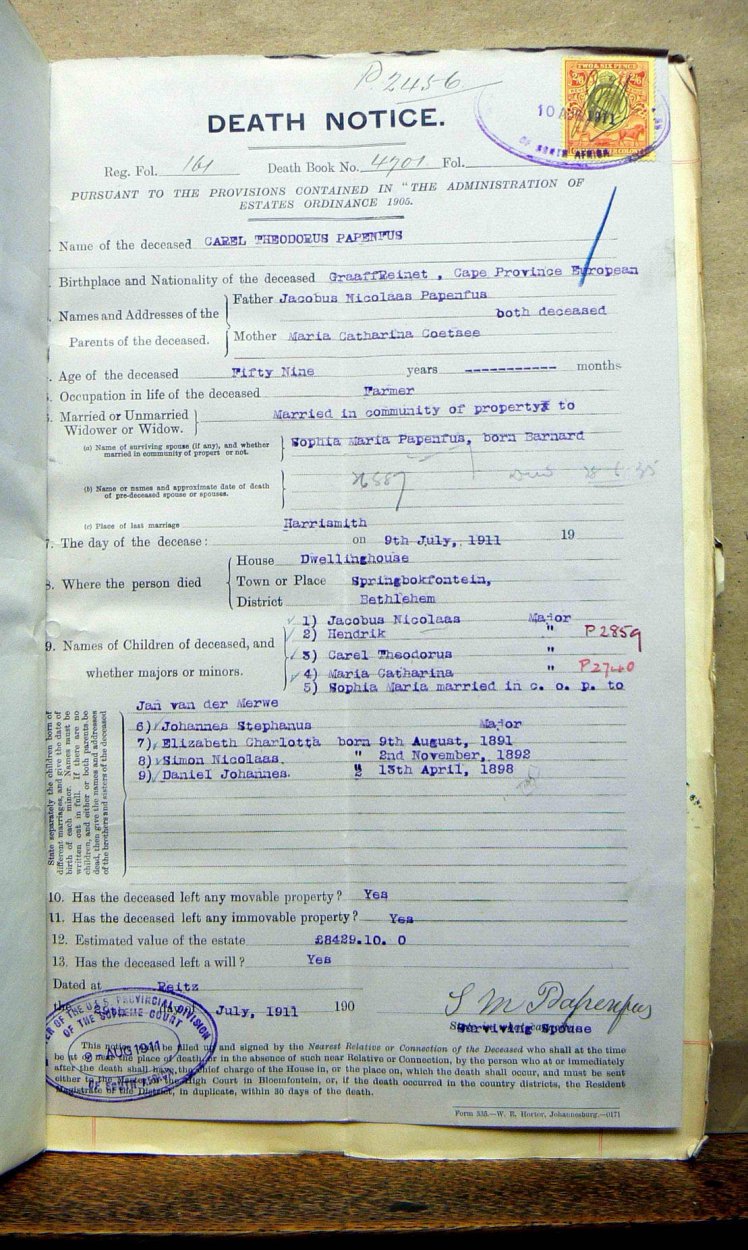 P2456
DEATH NOTICE.
TWO & SIX PENCE
2/6 2/6
10 AUG 1911
OF SOUTH AFRICA
Reg. Fol. 161 Death Book No. 4701 Fol.
PURSUANT TO THE PROVISIONS CONTAINED IN "THE ADMINISTRATION OF
ESTATES ORDINANCE 1905.
. Name of the deceased CAREL THEODORUS PAPENFUS
. Birthplace and Nationality of the deceased GraaffReinet , Cape Province European
Father Jacobus Nicolaas Papenfus
. Names and Addresses of the both deceased
Parents of the deceased. Mother Maria Catharina Coetsee
. Age of the deceased Fifty Nine years ----------- months
. Occupation in life of the deceased Farmer
. Married or Unmarried Married in community of property to
Widower or Widow.
(a) Name of surviving spouse (if any), and whether Sophia Maria Papenfus, born Barnard
married in community of propert or not.
(b) Name or names and approximate date of death
of pre-deceased spouse or spouses.
(c) Place of last marriage Harrismith
7. The day of the decease: on 9th July, 1911 19
House Dwellinghouse
8. Where the person died Town or Place Springbokfontein,
District Bethlehem
1) Jacobus Nicolaas Major
2) Hendrik " P2859
9. Names of Children of deceased, and 3) Carel Theodorus "
whether majors or minors. 4) Maria Catharina " P2740
5) Sophia Maria married in c. o. p. to
Jan van der Merwe
6) Johannes Stephanus Major
7) Elizabeth Charlotta born 9th August, 1891
8) Simon Nicolaas. " 2nd November, 1892
9) Daniel Johannes. " 13th April, 1898
State separately the children born of
different marriages, and give the date of
birth of each minor. Names must be
written out in full. If there are no
children, and either or both parents be
dead, then give the names and addresses
of the brothers and sisters of the deceased
10. Has the deceased left any movable property? Yes
11. Has the deceased left any immovable property? Yes
12. Estimated value of the estate £8429.10. 0
13. Has the deceased left a will? Yes
Dated at Reitz
the day of July, 1911 190
S M Papenfus
Surviving Spouse
OF THE O.F.S. PROVINCIAL DIVISION
OF THE SUPREME COURT
AUG 1911
OF SOUTH AFRICA
This notice to be filled up and signed by the Nearest Relative or Connection of the Deceased who shall at the time
be at or near the place of death, or in the absence of such near Relative or Connection, by the person who at or immediately
after the death shall have the chief charge of the House in, or the place on, which the death shall occur, and must be sent
either to the Master of the High Court in Bloemfontein, or, if the death occurred in the country districts, the Resident
Magistrate of the District, in duplicate, within 30 days of the death.
Form 535.—W. E. Hortor, Johannesburg.—0171